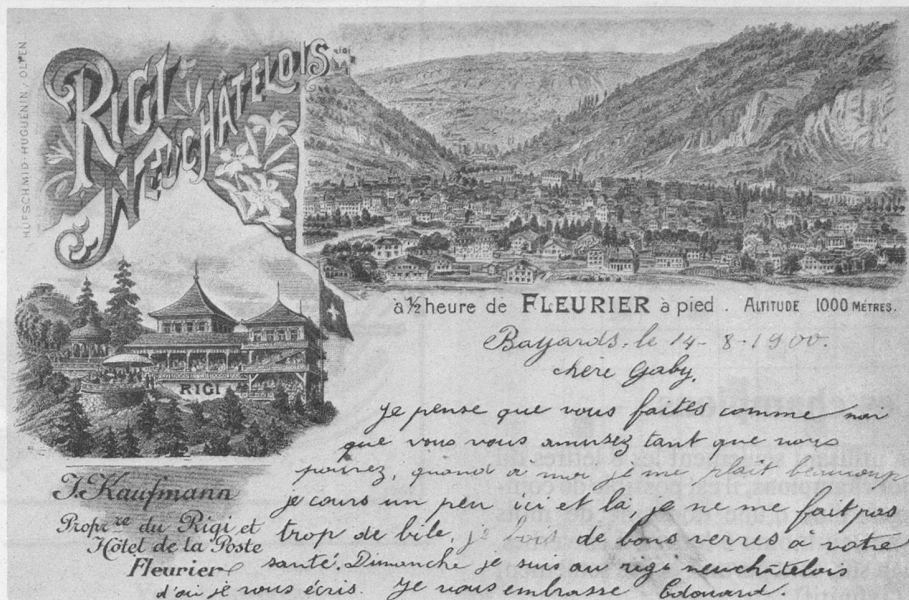 HUFSCHMID-HUGUENIN, OLTEN
RIGI
NEUCHÂTELOIS
RIGI
à ½ heure de FLEURIER à pied. ALTITUDE 1000 MÈTRES.
RIGI
J. Kaufmann
Propr.re du Rigi et
Hôtel de la Poste
Fleurier
Bayards, le 14-8-1900.
chère Gaby,
Je pense que vous faites comme moi
que vous vous amusez tant que vous
pouvez, quand a moi je me plait beaucoup
je cours un peu ici et là, je ne me fait pas
trop de bile, je bois de bons verres à votre
santé. Dimanche je suis au rigi neuchâtelois
d'où je vous écris. Je vous embrasse Edouard.